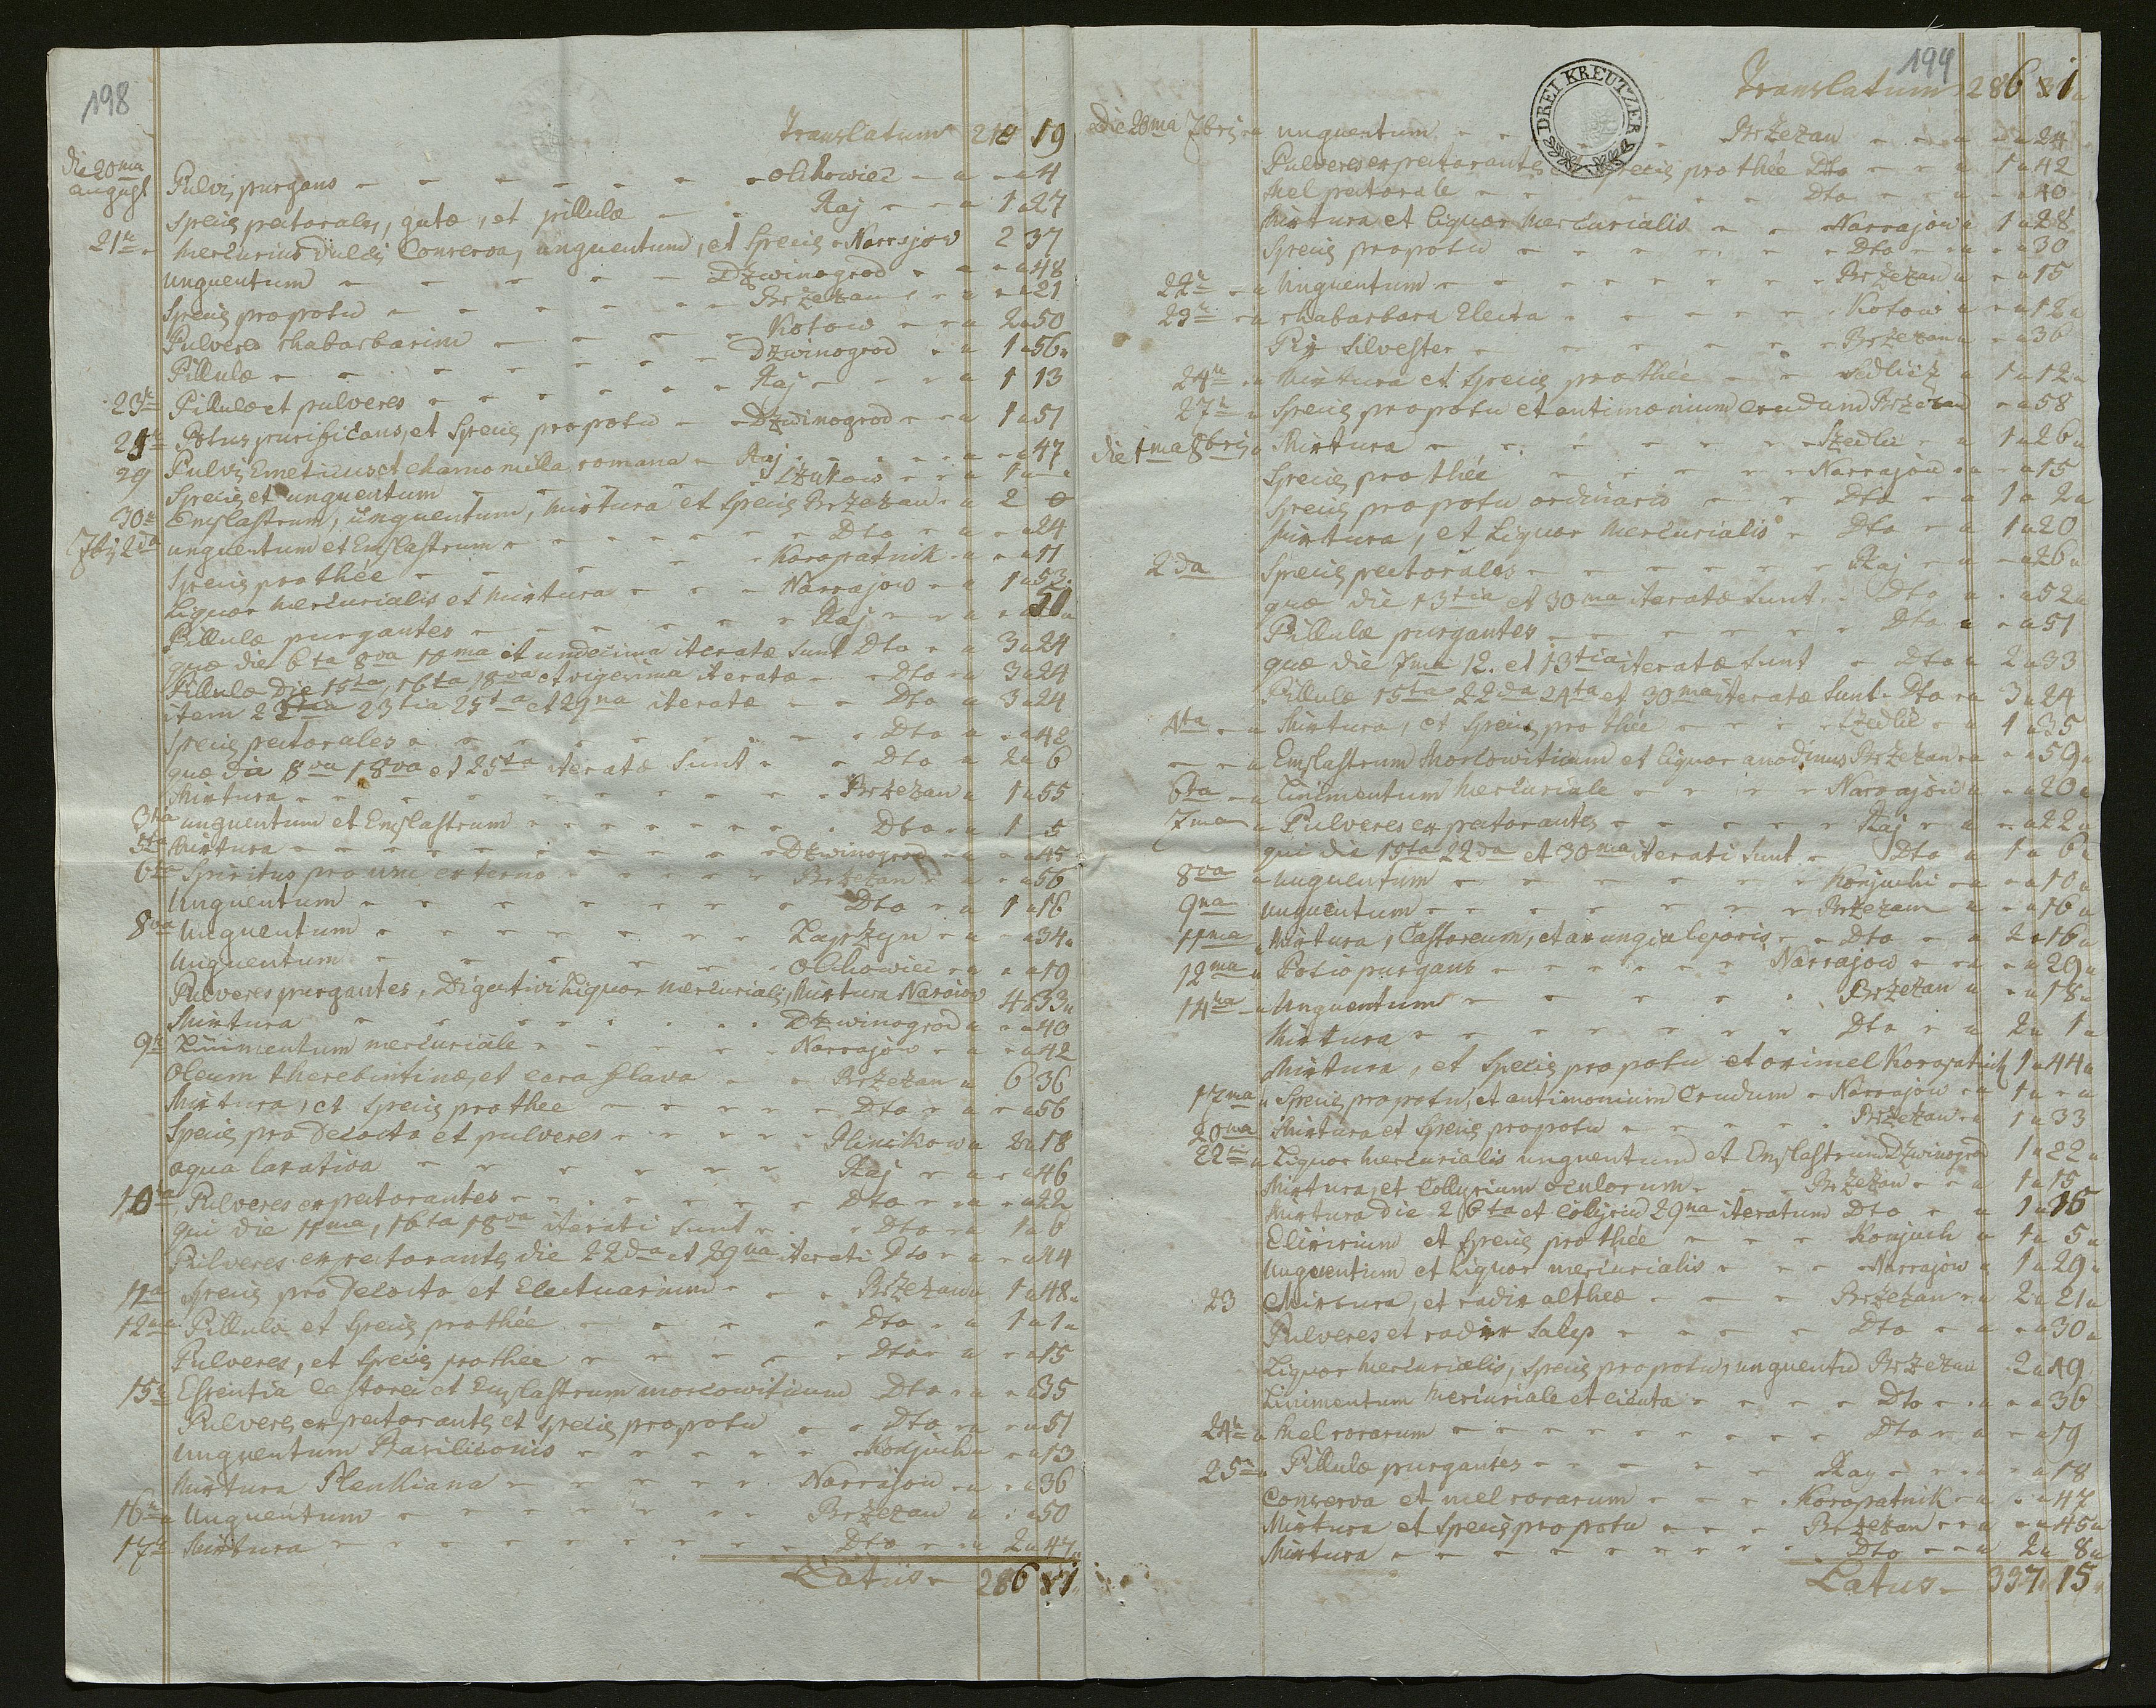 198
Translatum 210 19
die 20ma august Pulvis purgans Olchowiec 4
Species pectorales, gutæ, et pillulæ Raj 1 27
21u Mercurius dulcis Conserva, unguentum, et Species Narrajow 2 37
unguentum Dzwinogrod 48
Species pro potu Brzezan 21
Pulvere rhabarbarini Kotow 2 50
Pillulæ Dzwinogrod 1 56
23u Pillulæ et pulveres Raj 1 13
25u Potus purificans, et Species pro potu Dzwinogrod 1 51
29 Pulvis Emeticus et chamomilla romana Raj 47
Species et unguentum 1
30u Emplastrum, unguentum, mixtura et Species Brzezan 2 0
7bris 2da unguentum et Emplastrum Dto 24
Species pro thée Koropatnik 11
Liquor mercurialis et mixtura Narrajow 1 53
Pillulæ purgantes Raj 51
quæ die 6ta 8va 10ma et undecima iteratæ sunt Dto 3 24
Pillulæ Die 15ta, 16ta, 18va et vigesima iteratæ Dto 3 24
item 22 23tia 25ta et 29na iteratæ Dto 3 24
Species pectorales Dto 42
quæ die 8va 18va et 25ta iteratæ sunt Dto 2 6
Mixtura Brzezan 1 55
3tia unguentum et Emplastrum Dto 1 5
5ta Mixtura Dzwinogrod 45
6ta Spiritus pro usu externo Brzezan 56
Unguentum Dto 1 16
8va Unguentum Lapszyn 34
Unguentum Olchowiec 19
Pulveres purgantes, Digestivi Liquor mercurialis, Mixtura Naraiow 4 33
Mixtura Dzwinogrod 40
9u Linimentum mercuriale Narrajow 42
Oleum therebintinæ, et cera flava Brzezan 6 36
Mixtura, et Species pro thee Dto 56
Species pro Decocto et pulveres Plinikow 2 18
aqua laxativa Raj 46
10ma Pulveres expectorantes Dto 22
qui die 11ma, 16ta 18va iterati sunt Dto 1 6
Pulveres expectorantes die 22da et 29na iterati Dto 44
11a Species pro Decocto et Electuarium Brzezan 1 48
12ma Pillula et Species pro thée Dto 1 1
Pulveres, et Species pro thée Dto 15
15u Essentia Castorei et Emplastrum moscowiticum Dto 35
Pulveres expectorantes et species pro potu Dto 51
Unguentum Basilicouis Konjuch 13
Mixtura Plenkiana Narrajow 36
16u Unguentum Brzezan 50
17u Mixtura Dto 2 47
Latus 286 31
DREI KREUTZER
199
Translatum 286 31
Die 20ma 7bris unguentum Brzezan 24
Pulveres expectorantes et species pro thée Dto 1 42
Mel pectorale Dto 40
Mixtura et liquor Mercurialis Narrajow 1 28
Species pro potu Dto 30
22u Unguentum Brzezan 15
23u rhabarbara Electa Kotow 12
Pij Silvester Brzezan 36
24u Mixtura et Species pro thée Sedlicz 1 12
27u Species pro potu et antimonium crudum Brzezan 58
die 1ma 8bris Mixtura Szedlic 1 26
Species pro thée Narrajow 15
Species pro potu ordinario Dto 1 2
Mixtura, et Liquor Mercurialis Dto 1 20
2da Species pectorales Raj 26
quæ die 13tia et 30ma iteratæ sunt Dto 52
Pillulæ purgantes Dto 51
quæ die 7ma 12. et 13tia iteratæ sunt Dto 2 33
Pillulæ 15ta 22da 24ta et 30ma iteratæ sunt Dto 3 24
4ta Mixtura, et Species pro thée Szedlic 1 35
Emplastrum Moscowiticum et liquor anodinus Brzezan 59
6ta Linimentum Mercuriale Narrajow 20
7ma Pulveres expectorantes Raj 22
qui die 15ta 22da et 30ma iterati sunt Dto 1 6
8va Unguentum Konjuchi 10
9na Unguentum Brzezan 16
11ma Mixtura, Castoreum, et axungia leporis Dto 2 16
12ma Potio purgans Narrajow 29
14ta Unguentum Brzezan 18
Mixtura Dto 2 1
Mixtura, et Species pro potu et oximel Koropatnik 1 44
17ma Species pro potu, et antimonium Crudum Narrajow 1
20ma Mixtura et Species pro potu Brzezan 1 33
22u Liquor Mercurialis unguentum et Emplastrum Dzwinogrod 1 22
Mixtura, et Collyrium oculorum Brzezan 1 15
Mixtura die 26ta et Colyriu 29na iteratum Dto 1 15
Elixirium et species pro thée Konjuch 1 5
Unguentum et Liquor mercurialis Narrajow 1 29
23 Mixtura, et radix altheæ Brzezan 2 21
Pulveres et radix Salep Dto 30
Liquor Mercurialis, Species pro potu, unguentu Brzezan 2 19
Linimentum Mercuriale et cicuta Dto 36
24u Mel rosarum Dto 19
25u Pillulæ purgantes Ray 18
Conserva et mel rosarum Koropatnik 47
Mixtura et Species pro potu Brzezan 45
Mixtura Dto 2 8
Latus 337 15